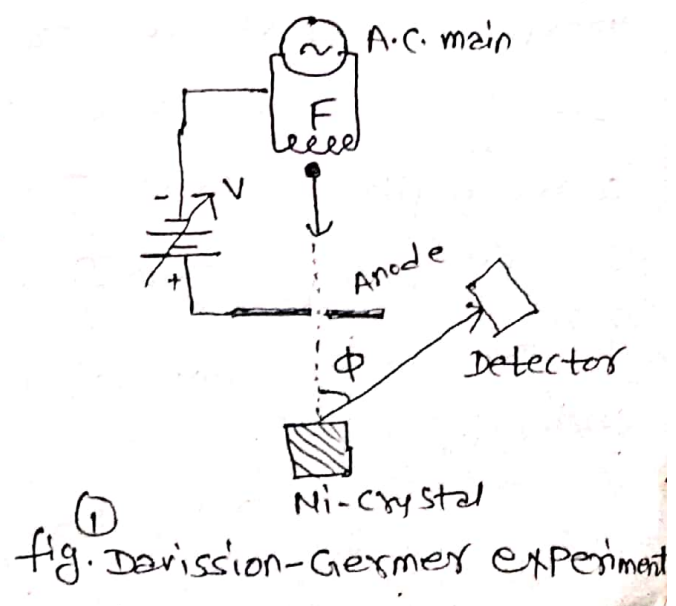 A.C. main
F
- V
+
Anode
Φ
Detector
Ni-Crystal
①
fig. Davission-Germer experiment